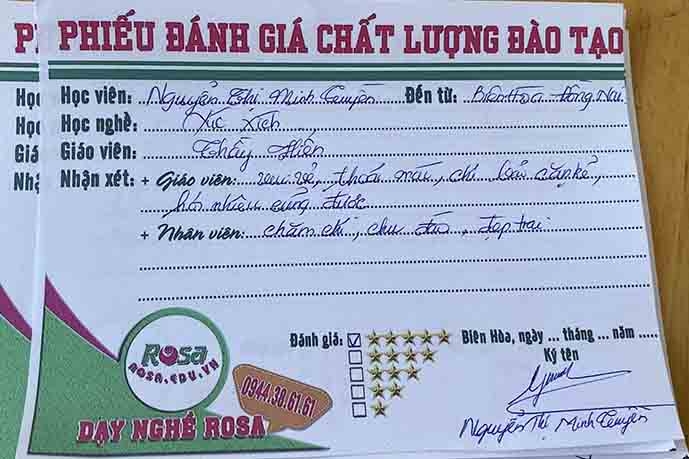 PHIẾU ĐÁNH GIÁ CHẤT LƯỢNG ĐÀO TẠO
Học viên: Nguyễn Thị Minh Tuyền Đến từ: Biên Hòa Đồng Nai
Học nghề: Xúc Xích
Giáo viên: Thầy Hiến
Nhận xét: + Giáo viên: vui vẻ, thoải mái, chỉ bảo cặn kẽ,
hỏi nhiều cũng được
+ Nhân viên: chăm chỉ, chu đáo, đẹp trai
Đánh giá: Biên Hòa, ngày ... tháng ... năm ....
Ký tên
Rosa
ROSA.EDU.VN
0944.38.61.61
DẠY NGHỀ ROSA
Nguyễn Thị Minh Tuyền